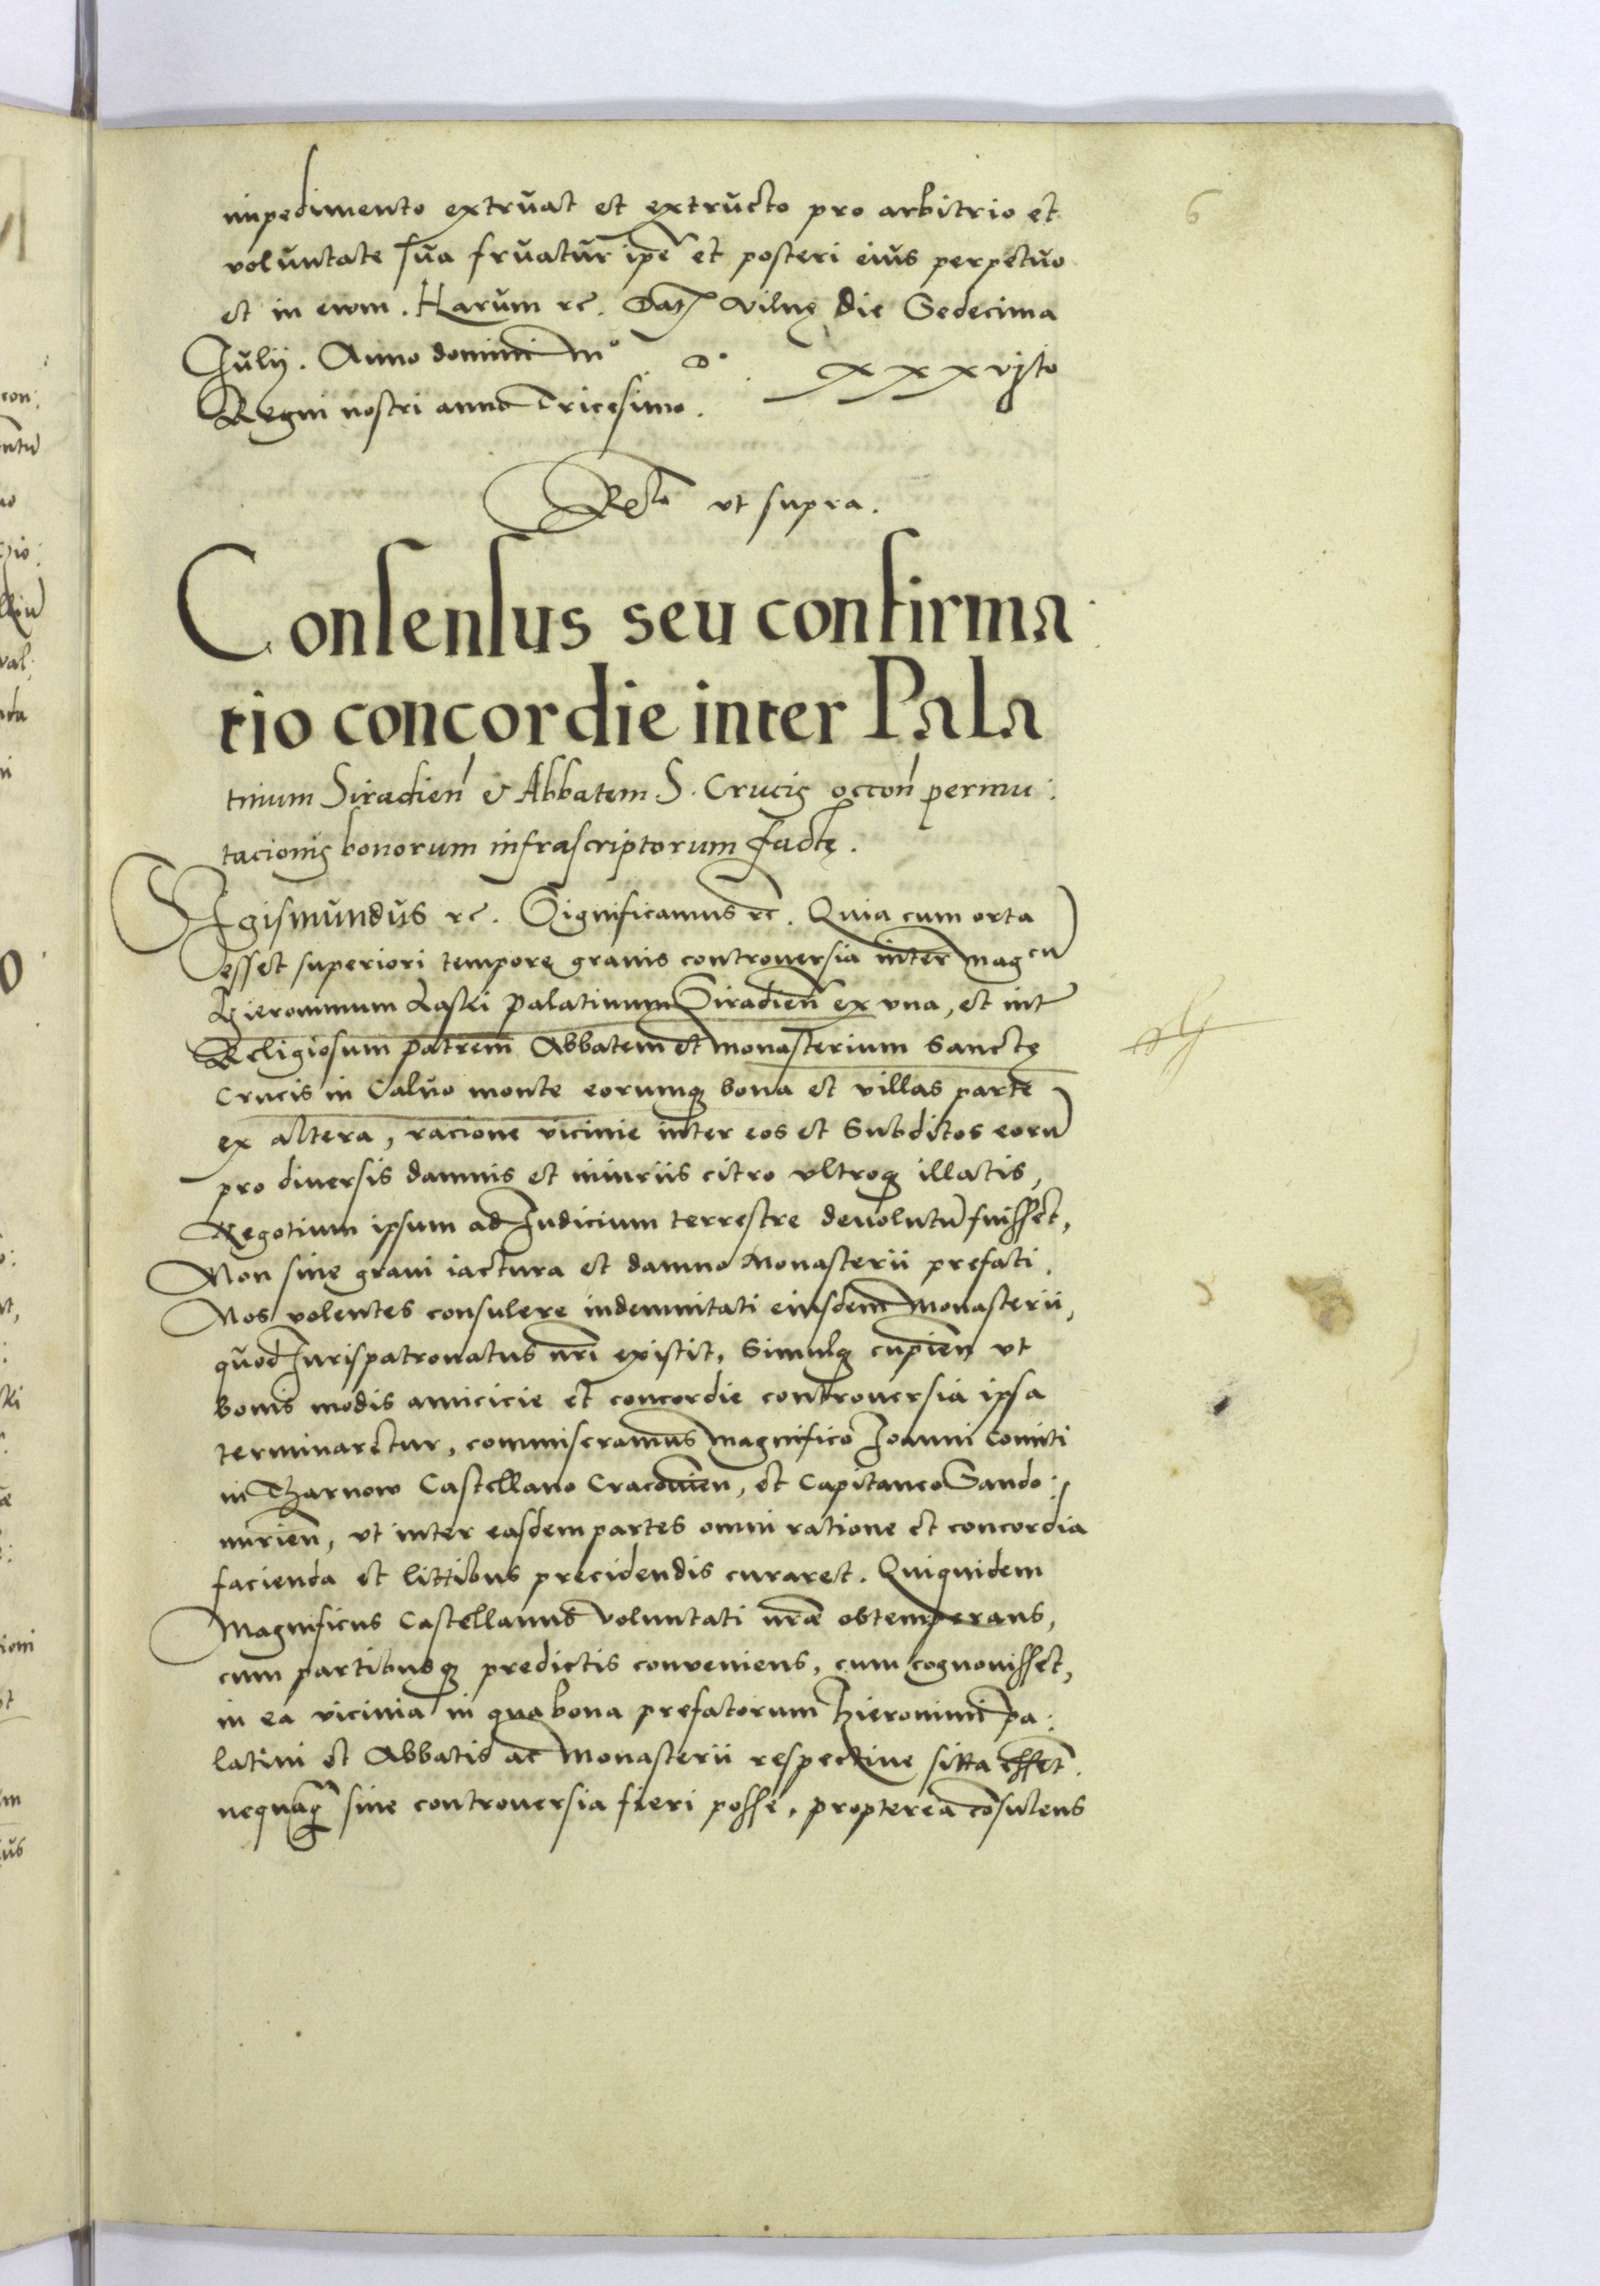 6
impedimento extruat et extructo pro arbitrio et
voluntate sua fruatur ipe et posteri eius perpetuo
et in ewm. Harum rc. Datz Vilnę die Sedecima
Julij. Anno domini mº Dº xxxvjto
Regni nostri anno Tricesimo.
Rclo vt supra.
Consensus seu confirma
tio concordie inter Pala
tinum Siradien & Abbatem S. Crucis occon permu:
tacionis bonorum infrascriptorum factę.
Sigismundus rc. Significamus rc. Quia cum orta
esset superiori tempore grauis controuersia inter mag cu
Hieronimum Laski palatinum Siradien ex vna, et inter
Religiosum patrem Abbatem et monasterium Sanctę
Crucis in Caluo monte eorumq bona et villas parte
ex altera, racione vicinie inter eos et Subditos eoru
pro diuersis damnis et iniuriis citro vltroq illatis,
Negotium ipsum ad Iudicium terrestre deuolutu fuisset,
Non sine graui iactura et damno Monasterii prefati.
Nos volentes consulere indemnitati eiusdem Monasterii,
quod Iurispatronatus nri existit, Simulq cupien vt
bonis modis amicicie et concordie controuersia ipsa
terminaretur, commiseramus magnifico Ioanni Comiti
in Tharnow Castellano Cracouien, et Capitaneo Sando:
mirien, vt inter easdem partes omni ratione et concordia
facienda et littibus precidendis curaret. Quiquidem
Magnificus Castellanus voluntati nræ obtemperans,
cum partibusq predictis conueniens, cum cognouisset,
in ea vicinia in qua bona prefatorum Hieronimi pa:
latini et Abbatis ac Monasterii respectiue sitta essent.
nequaq sine controuersia fieri posse, propterea cosulens